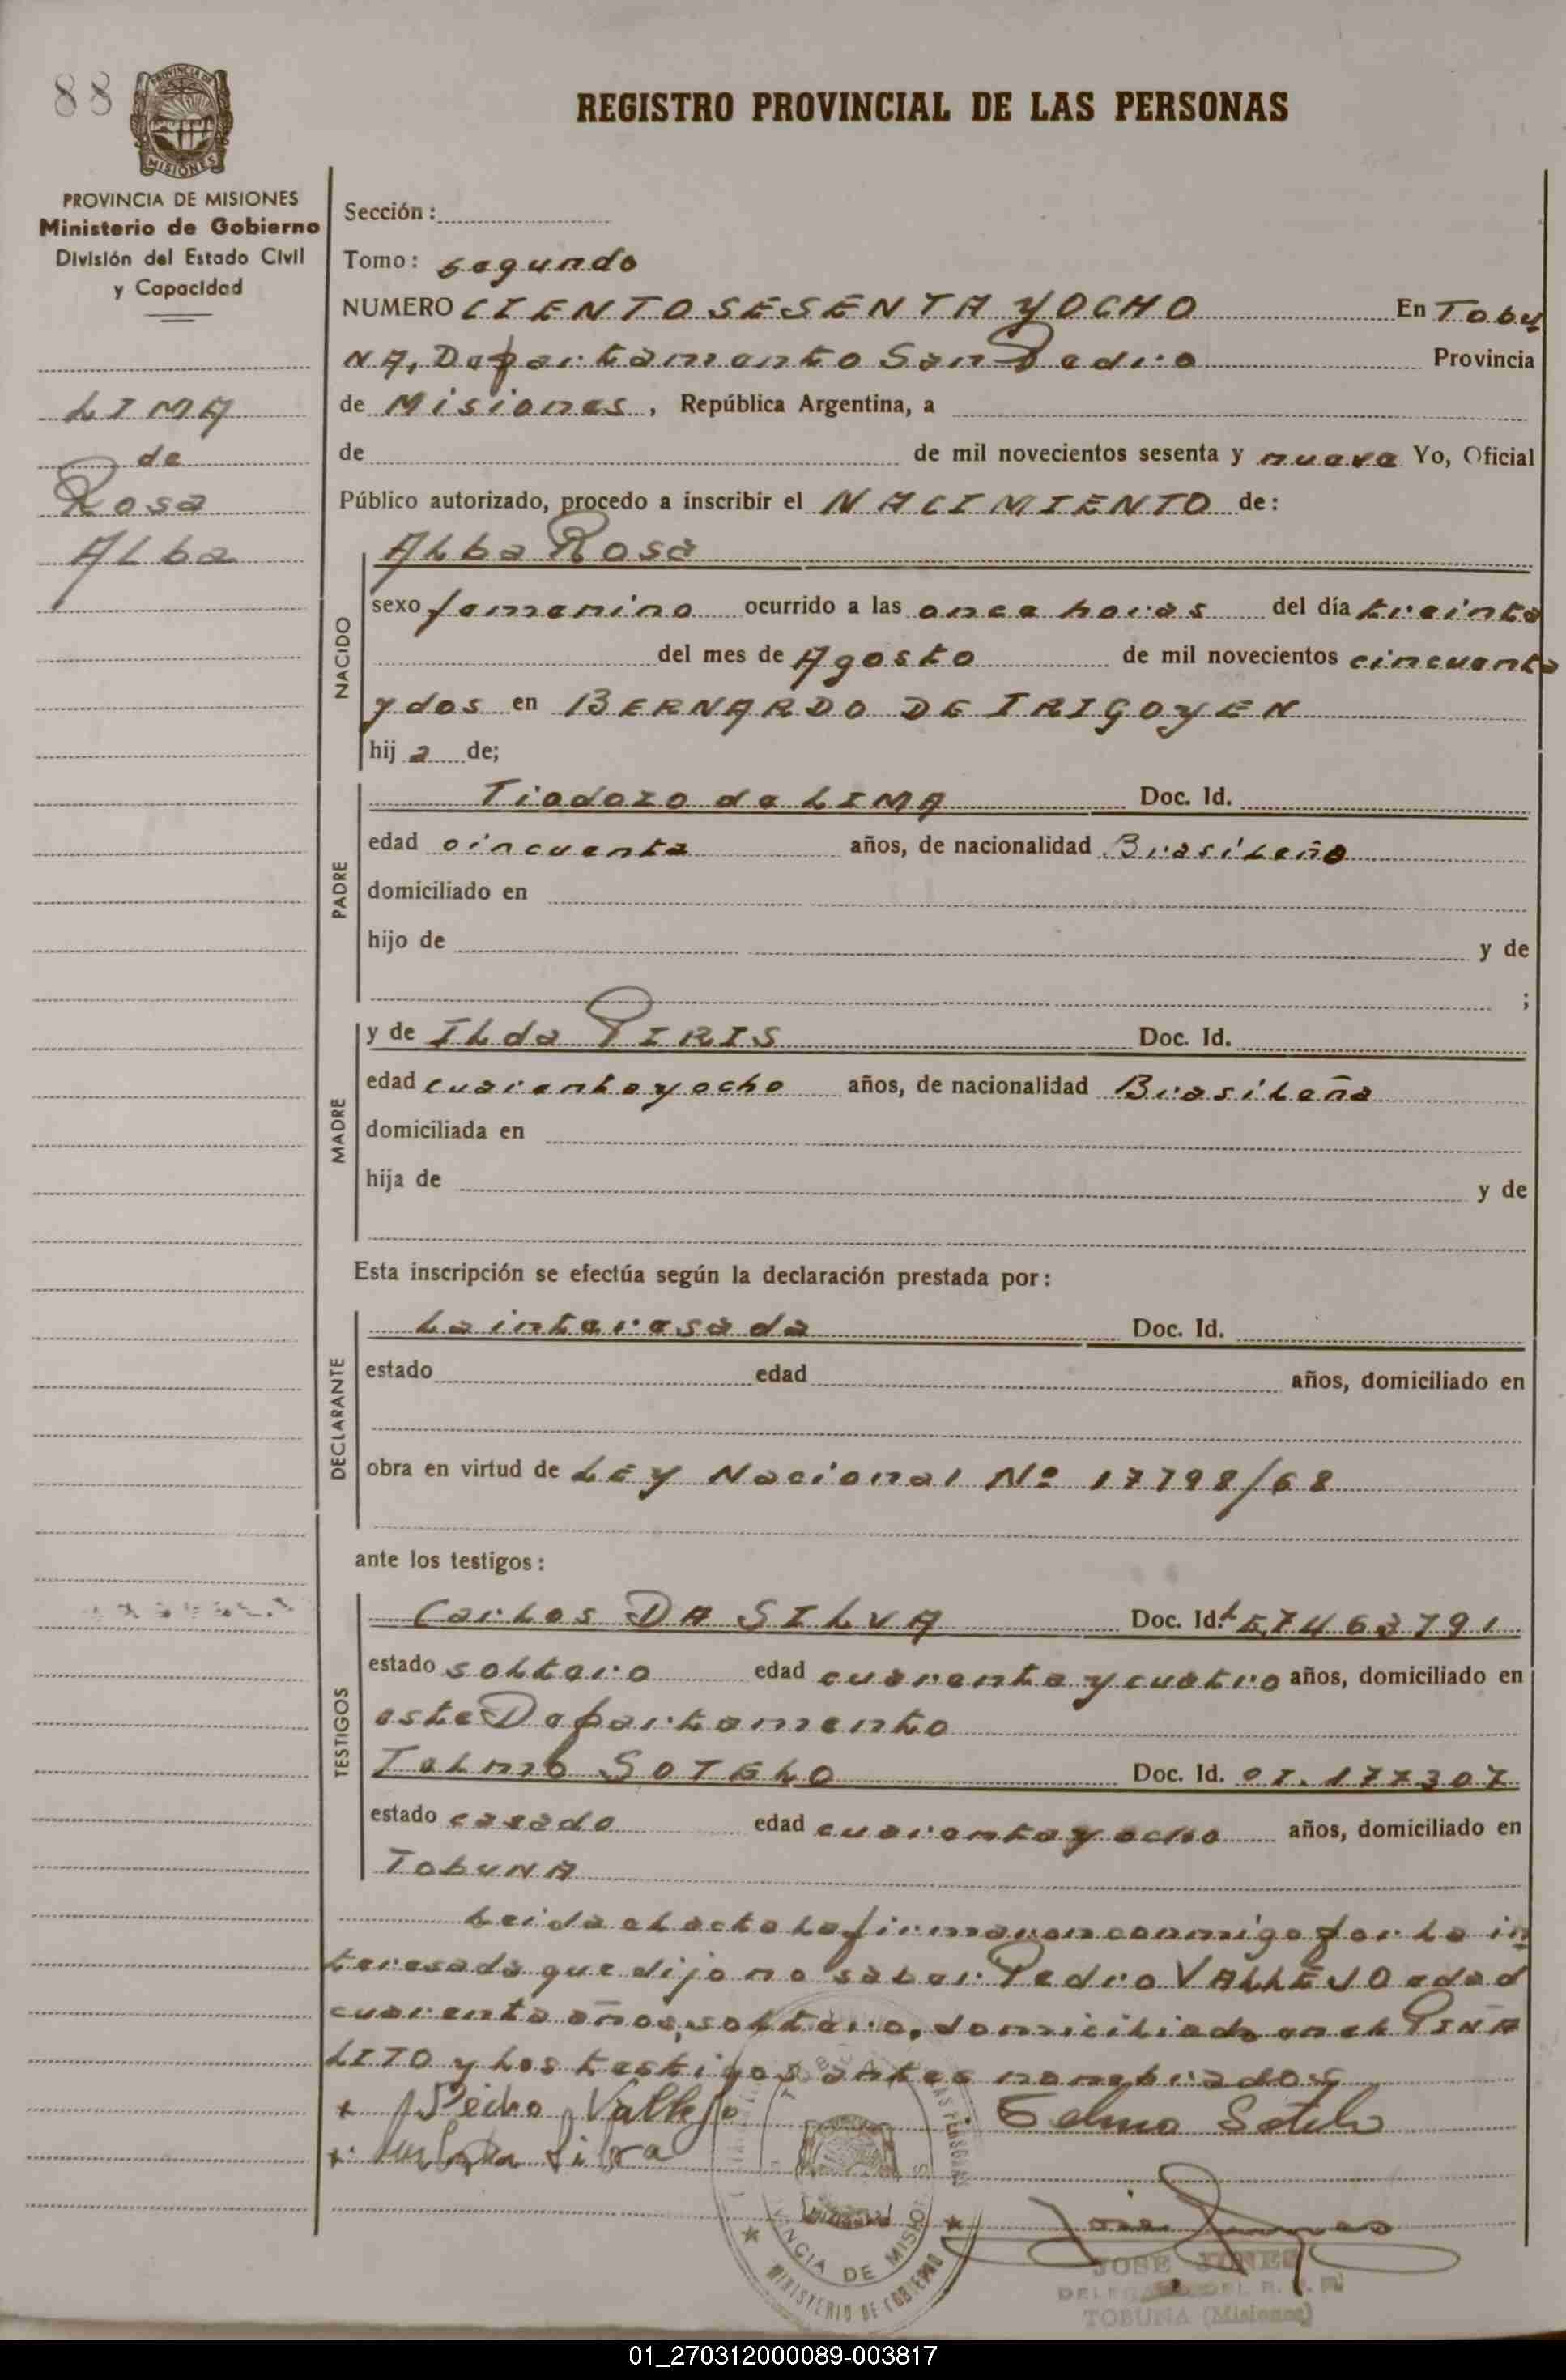 88
PROVINCIA DE
MISIONES
REGISTRO PROVINCIAL DE LAS PERSONAS
PROVINCIA DE MISIONES
Ministerio de Gobierno
División del Estado Civil
y Capacidad
LIMA
de
Rosa
ALba
Sección:
Tomo: segundo
NUMERO CIENTO SESENTA y OCHO En Tobu
NA, Departamento San Pedro Provincia
de Misiones, República Argentina, a
de de mil novecientos sesenta y nueve Yo, Oficial
Público autorizado, procedo a inscribir el NACIMIENTO de:
NACIDO
ALba Rosa
sexo femenino ocurrido a las once horas del día treinta
del mes de Agosto de mil novecientos cincuenta
y dos en BERNARDO DE IRIGOYEN
hij a de;
PADRE
Tiodozo de LIMA Doc. Id.
edad cincuenta años, de nacionalidad BrasiLeño
domiciliado en
hijo de y de
;
MADRE
y de ILda PIRIS Doc. Id.
edad cuarenta y ocho años, de nacionalidad BrasiLeña
domiciliada en
hija de y de
Esta inscripción se efectúa según la declaración prestada por:
DECLARANTE
La interesada Doc. Id.
estado edad años, domiciliado en
obra en virtud de LEy Nacional Nº 17798/68
ante los testigos:
TESTIGOS
CarLos DA SILVA Doc. Id.
estado soLtero edad cuarenta y cuatro años, domiciliado en
este Departamento
TeLmo SOTELO Doc. Id. 07.177307
estado casado edad cuarenta y ocho años, domiciliado en
TobuNA
Leida eL acta La firmaron conmigo por La in
teresada que dijo no saber Pedro VALLEJO edad
cuarenta años, soLtero, domiciLiado en eL PIÑA
LITO y Los testigos antes nombrados
x Pedro Vallejo Telmo Sotelo
PROVINCIA DE MISIONES
MINISTERIO DE GOBIERNO
JOSE
TOBUNA (Misiones)
01_270312000089-003817